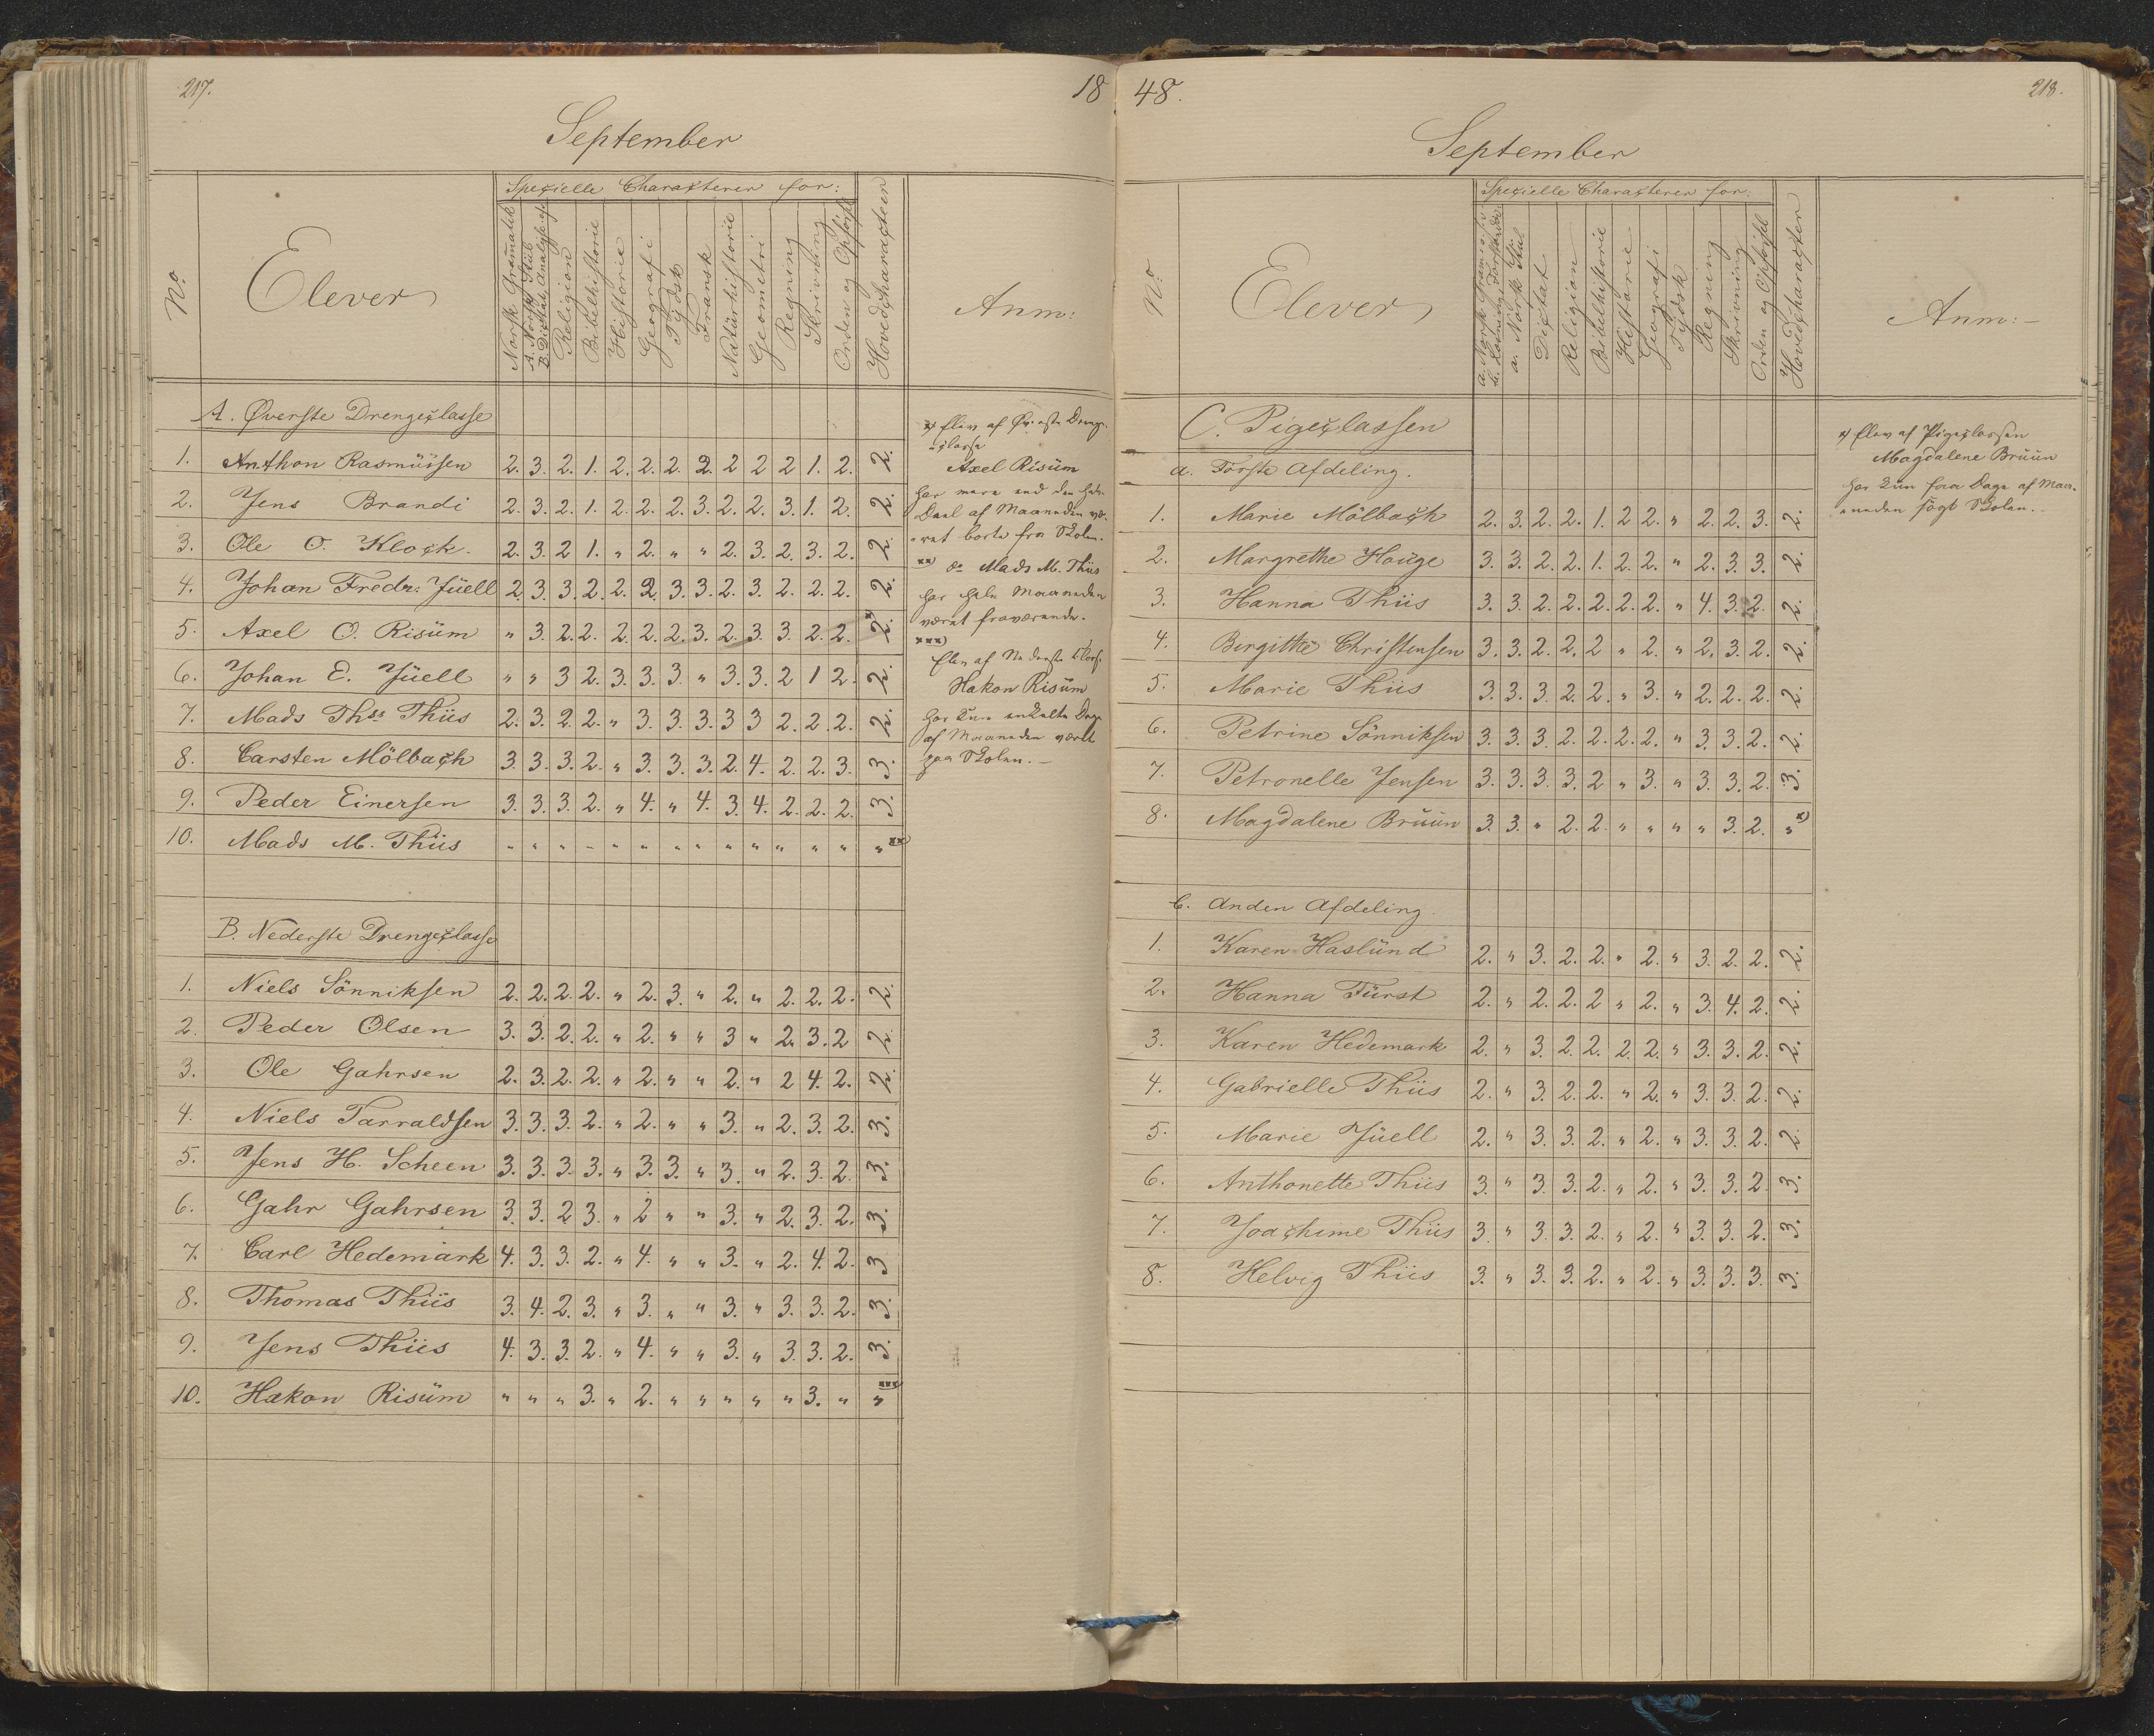 217.
18
September
No.
Elever
Specielle Characterer for:
Norsk Gramatik
A. Norsk Stiil
B. Dictat, Analyse
Religion
Bibelhistorie
Historie
Geografi
Tydsk
Fransk
Natürhistorie
Geometri
Regning
Skrivning
Orden og Opförsel
Hovedcharacteer
Anm:
A. Øverste Drengeclasse
1. Anthon Rasmüssen 2. 3. 2. 1. 2. 2. 2. 2. 2 2 2 1. 2. 2.
2. Jens Brandi 2. 3. 2. 1. 2. 2. 2. 3. 2. 2. 3. 1. 2. 2.
3. Ole O. Klock. 2. 3. 2 1. " 2. " " 2. 3. 2. 3. 2. 2.
4. Johan Fredr: Jüell 2. 3. 3. 2. 2. 2. 3. 3. 2. 3. 2. 2. 2. 2.
5. Axel O. Risüm " 3. 2. 2. 2. 2. 2. 3. 2. 3. 3. 2. 2. 2. x)
6. Johan E. Jüell " " 3 2. 3. 3. 3. " 3. 3. 2 1 2. 2.
7. Mads Thss Thiis 2. 3. 2. 2. " 3. 3. 3. 3 3 2. 2. 2. 2.
8. Carsten Mölbach 3. 3. 3. 2. " 3. 3. 3. 2. 4. 2. 2. 3. 3.
9. Peder Einersen 3. 3. 3. 2. " 4. " 4. 3. 4. 2. 2. 2. 3.
10. Mads M. Thiis " " " " " " " " " " " " " " xx)
B. Nederste Drengeclasse
1. Niels Sönniksen 2. 2. 2. 2. " 2. 3. " 2. " 2. 2. 2. 2.
2. Peder Olsen 3. 3. 2. 2. " 2. " " 3 " 2. 3. 2 2.
3. Ole Gahrsen 2. 3. 2. 2. " 2. " " 2. " 2 4. 2. 2.
4. Niels Tarraldsen 3. 3. 3. 2. " 2. " " 3. " 2. 3. 2. 3.
5. Jens H. Scheen 3. 3. 3. 3. " 3. 3. " 3. " 2. 3. 2. 3.
6. Gahr Gahrsen 3. 3. 2 3. " 2 " " 3. " 2. 3. 2. 3.
7. Carl Hedemark 4. 3. 3. 2. " 4. " " 3. " 2. 4. 2. 3
8. Thomas Thiis 3. 4. 2. 3. " 3. " " 3. " 3. 3. 2. 3.
9. Jens Thiis 4. 3. 3. 2. " 4. " " 3. " 3. 3. 2. 3.
10. Hakon Risüm " " " 3. " 2. " " " " " 3. " " xxx)
x) Elev af Øverste Drenge-
-classe
Axel Risüm
har mere end den halve
Deel af Maaneden væ-
-ret borte fra Skolen.
xx) do Mads M. Thiis
har hele Maaneden
været fraværende.
xxx)
Elev af Nederste Classe
Hakon Risüm
har kun enkelte Dage
af Maaneden været
paa Skolen. –
48.
218.
September
No.
Elever
Specielle Characterer for:
a. Norsk Gramatik
b. Læsning, Forstand
a. Norsk Stiil
Dictat
Religion
Bibelhistorie
Historie
Geografi
Tydsk
Regning
Skrivning
Orden og Opförsel
Hovedcharacteer
Anm: –
C. Pigeclassen
a. Förste Afdeling.
1. Marie Mölbach 2. 3. 2. 2. 1. 2 2. " 2. 2. 3. 2.
2. Margrethe Houge 3. 3. 2. 2. 1. 2. 2. " 2. 3. 3. 2.
3. Hanna Thiis 3. 3. 2. 2. 2. 2. 2. " 4. 3. 2. 2.
4. Birgitte Christensen 3. 3. 2. 2. 2 " 2. " 2. 3. 2. 2.
5. Marie Thiis 3. 3. 3. 2. 2. " 3. " 2. 2. 2. 2.
6. Petrine Sönniksen 3. 3. 3. 2. 2. 2. 2. " 3. 3. 2. 2.
7. Petronelle Jensen 3. 3. 3. 3. 2 " 3. " 3. 3. 2. 3.
8. Magdalene Brüün 3. 3. " 2. 2. " " " " 3. 2. " x)
b. Anden Afdeling.
1. Karen Haslünd 2. " 3. 2. 2. " 2. " 3. 2. 2. 2.
2. Hanna Fürst 2. " 2. 2. 2 " 2. " 3. 4. 2. 2.
3. Karen Hedemark 2. " 3. 2. 2. 2. 2. " 3. 3. 2. 2.
4. Gabrielle Thiis 2. " 3. 2. 2. " 2. " 3. 3. 2. 2.
5. Marie Jüell 2. " 3. 3. 2. " 2. " 3. 3. 2. 2.
6. Anthonette Thiis 3. " 3. 3. 2. " 2. " 3. 3. 2. 3.
7. Joachime Thiis 3. " 3. 3. 2. " 2. " 3. 3. 2. 3.
8. Helvig Thiis 3. " 3. 3. 2. " 2. " 3. 3. 3. 3.
x) Elev af Pigeclassen
Magdalene Brüün
har kun faa Dage af Maa-
-neden sögt Skolen. –